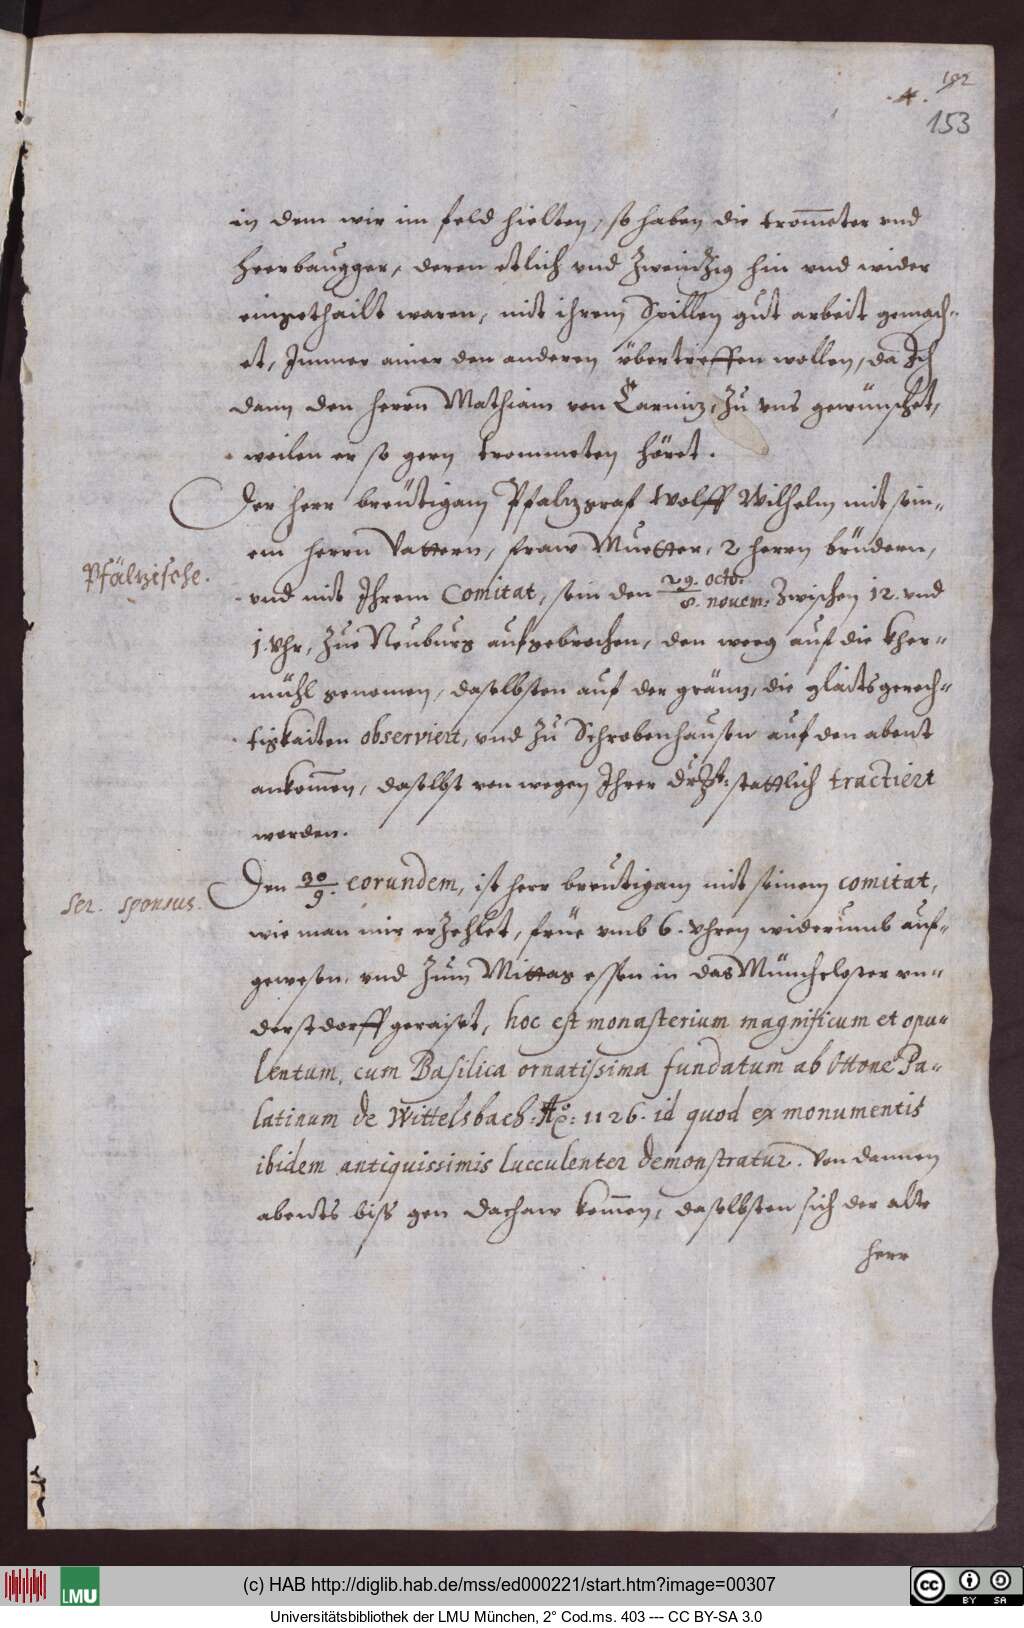 192
.4.
153
in dem wir im feld hielten, so haben die trom̄eter vnd
Heerbaugger, deren etlich vnd Zweinzig hin vnd wider
eingethailt waren, mit ihrem Spillen gůt arbeit gemach-
et, Immer ainer den anderen übertreffen wollen, da Ich
dann den herrn Mathiam von Carniz, Zů vns gewünschet,
weilen er so gern trommeten höret.
Der herr breütigam Pfalzgraf Wolff Wilhelm mit sein-
em herrn Vattern, fraw Muetter, 2 herrn brüdern,
Pfälzische.
vnd mit Ihrem Comitat, sein den 29. octo: / 8. novem: Zwischen 12. vnd
1. Vhr, Zue Neuburg aufgebrochen, den weeg auf die Kher-
mühl genomen, daselbsten auf der gränz, die glaitsgerech-
tigkaiten observiert, vnd Zů Schrobenhausen auf den abent
ankom̄en, daselbst von wegen Ihrer drht: stattlich tractiert
worden.
Den 30/9. eorundem, ist herr breütigam mit seinem comitat,
Ser. sponsus.
wie man mir erZehlet, früe vmb 6. Vhren widerumb auf-
gewesen, vnd Zům Mittag essen in das Münchcloster vn-
derstdorff geraiset, hoc est monasterium magnificum et opu-
lentum, cum Basilica ornatissima fundatum ab Ottone Pa-
latinum de Wittelsbach: Aō: 1126. id quod ex monumentis
ibidem antiquissimis lucculenter demonstratur. Von dannen
abents biss gen dachaw kom̄en, daselbsten sich der alte
herr
(c) HAB http://diglib.hab.de/mss/ed000221/start.htm?image=00307
LMU
cc BY SA
Universitätsbibliothek der LMU München, 2° Cod.ms. 403 --- CC BY-SA 3.0